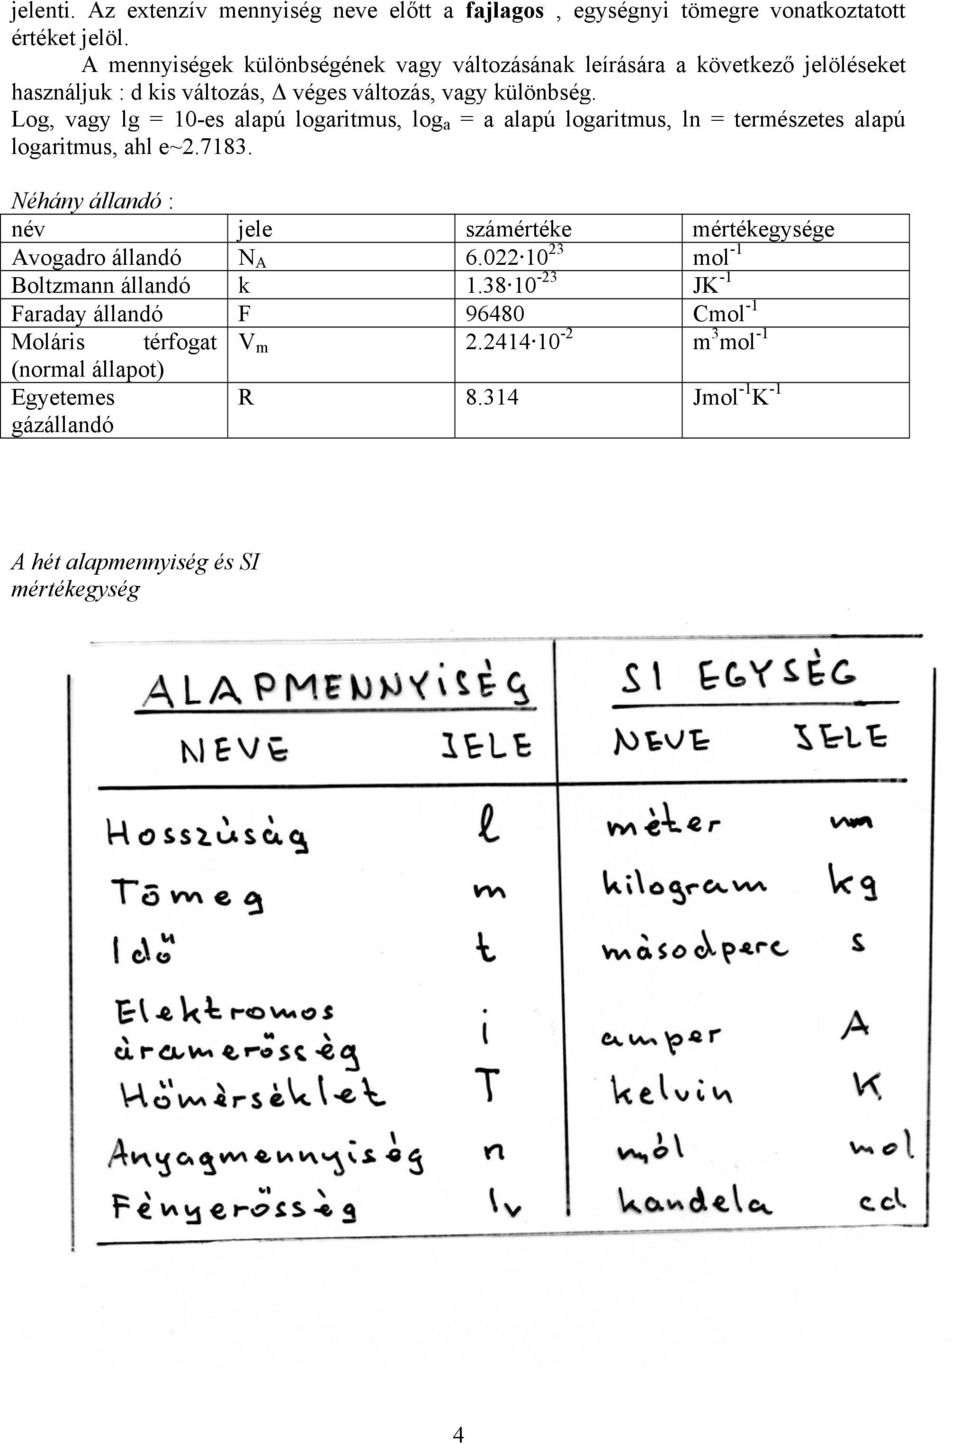 jelenti. Az extenzív mennyiség neve előtt a fajlagos , egységnyi tömegre vonatkoztatott
értéket jelöl.
A mennyiségek különbségének vagy változásának leírására a következő jelöléseket
használjuk : d kis változás, Δ véges változás, vagy különbség.
Log, vagy lg = 10-es alapú logaritmus, logₐ = a alapú logaritmus, ln = természetes alapú
logaritmus, ahl e~2.7183.
Néhány állandó :
név jele számértéke mértékegysége
Avogadro állandó N_A 6.022·10²³ mol⁻¹
Boltzmann állandó k 1.38·10⁻²³ JK⁻¹
Faraday állandó F 96480 Cmol⁻¹
Moláris térfogat Vₘ 2.2414·10⁻² m³mol⁻¹
(normal állapot)
Egyetemes R 8.314 Jmol⁻¹K⁻¹
gázállandó
A hét alapmennyiség és SI
mértékegység
ALAPMENNYISÉG SI EGYSÉG
NEVE JELE NEVE JELE
Hosszúság l méter m
Tömeg m kilogram kg
Idő t másodperc s
Elektromos
áramerősség i amper A
Hőmérséklet T kelvin K
Anyagmennyiség n mól mol
Fényerősség Iv kandela cd
4